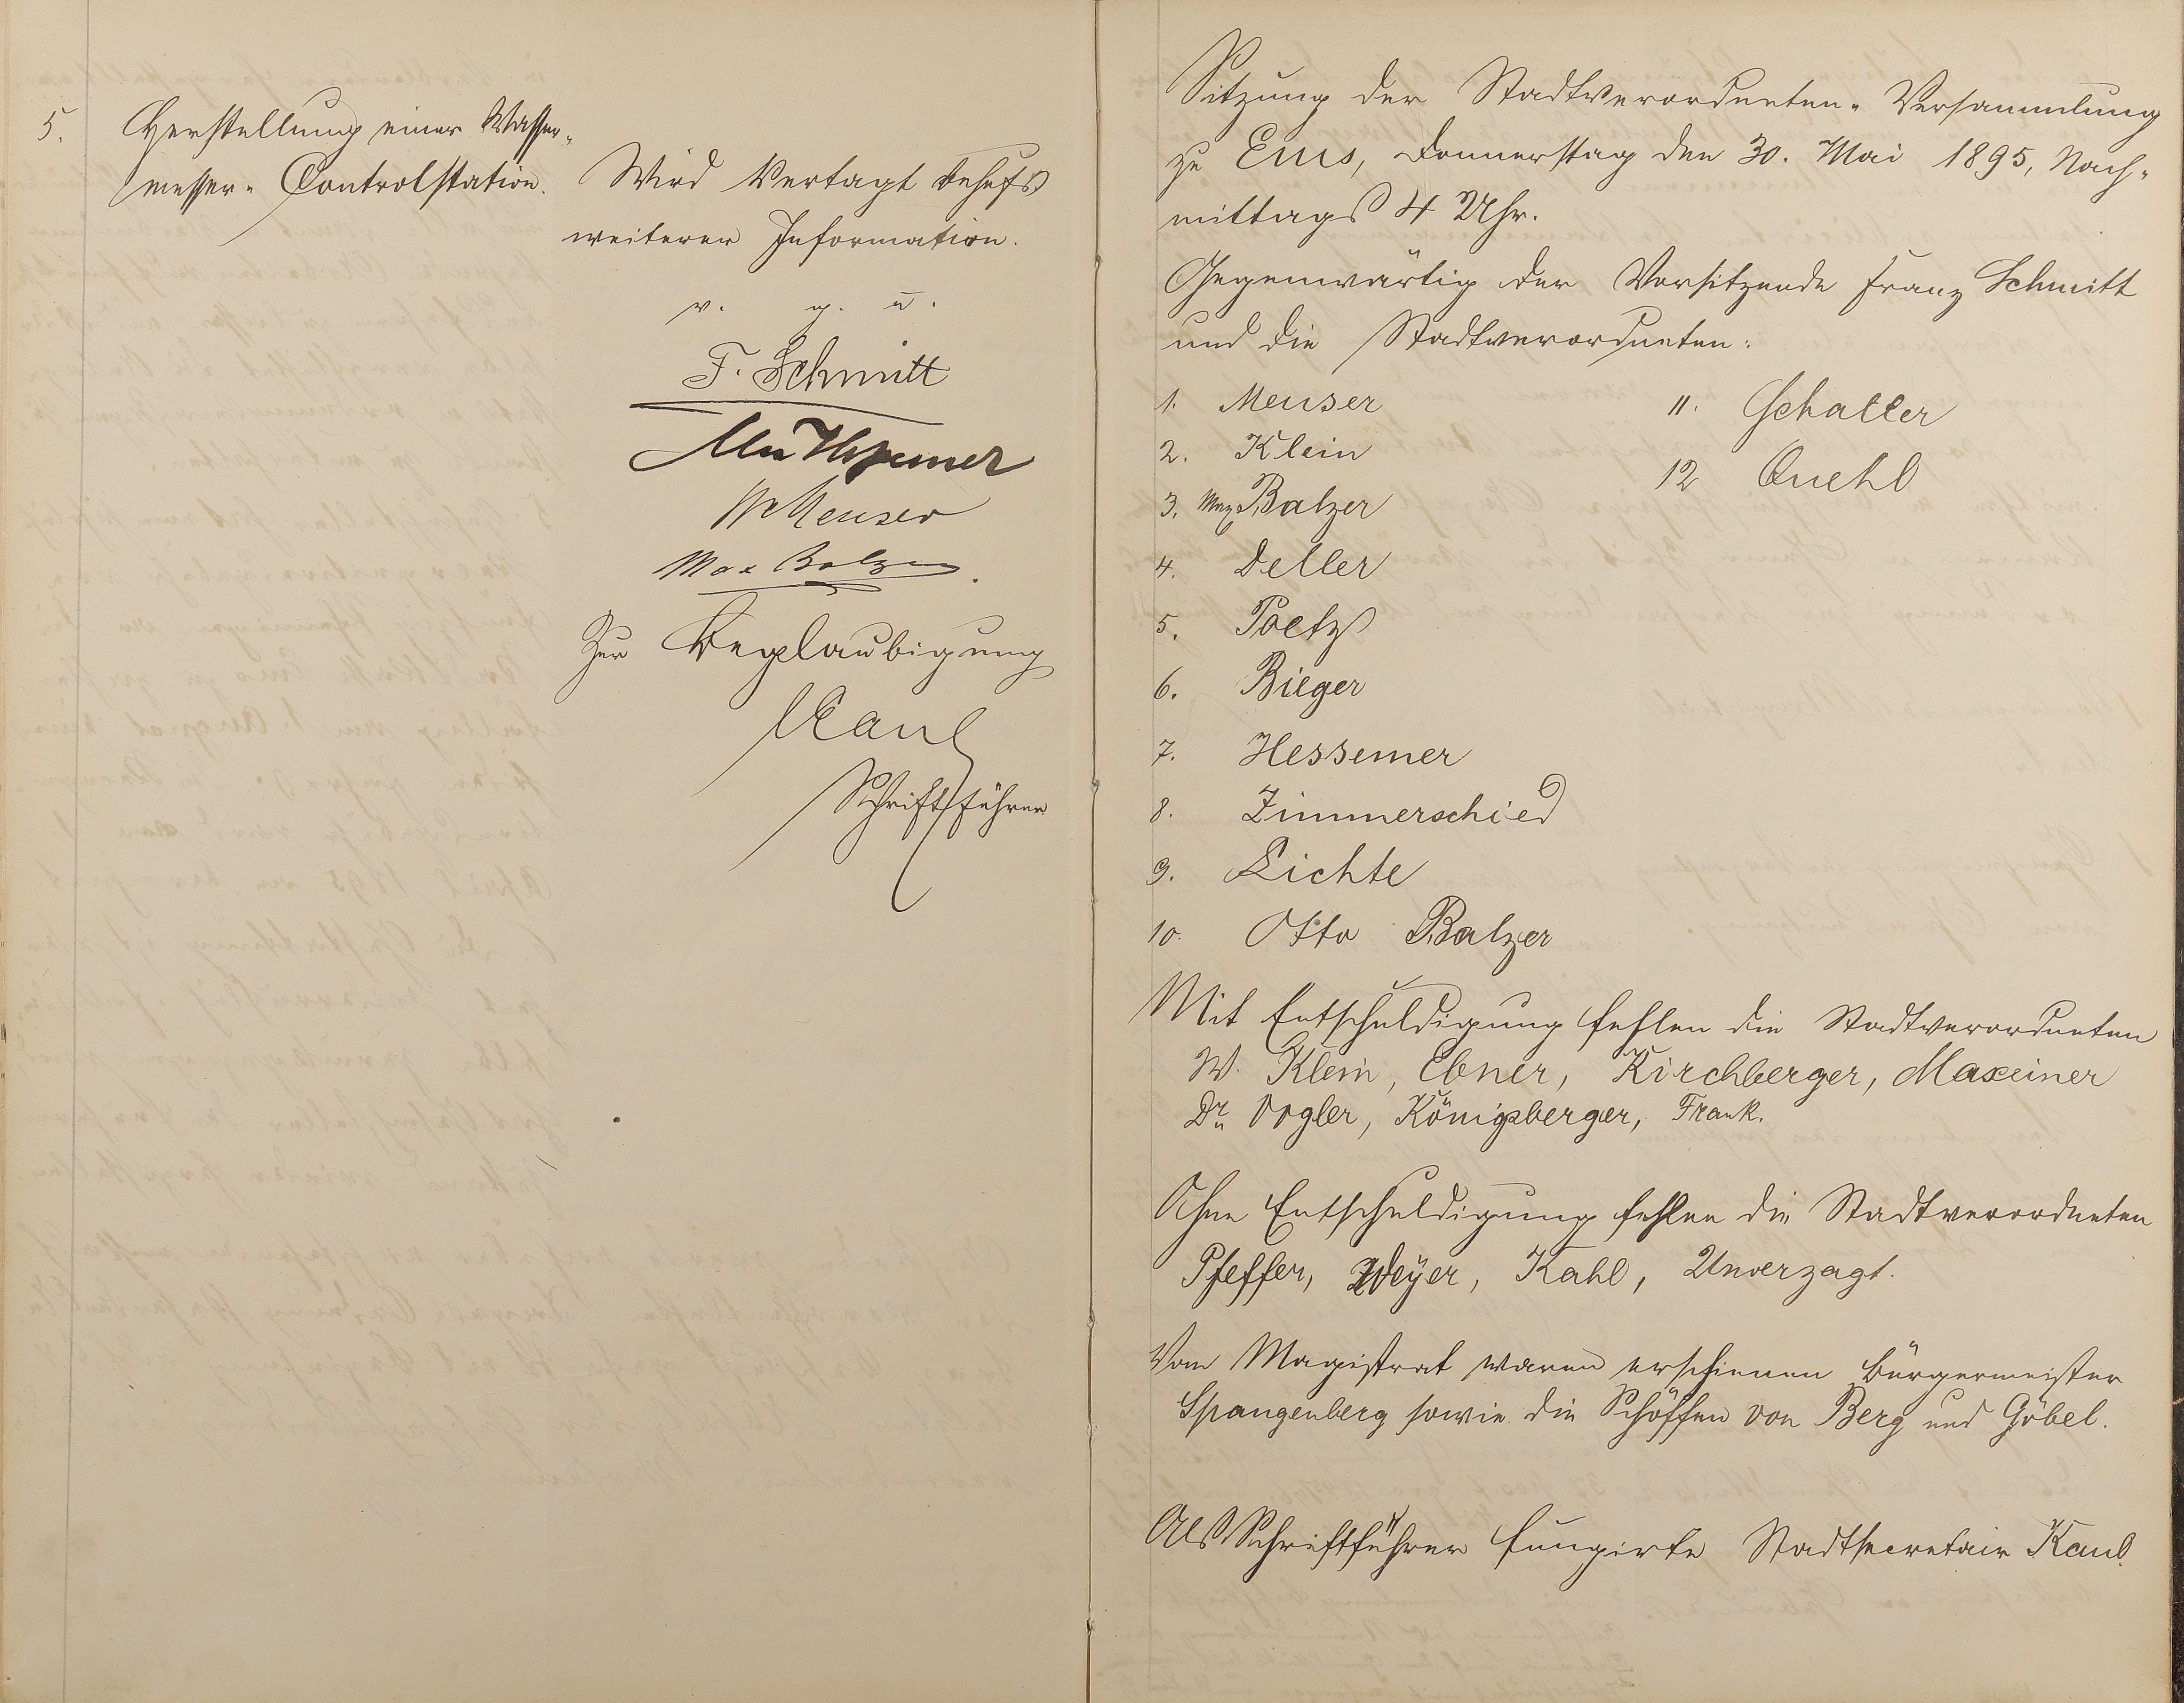 5.
Herstellung einer Wasser-
messer-Controlstation.
Wird vertagt behufs
weiterer Information.
v. g. u.
F. Schmitt
W. Meuser
Max Balzer
Zur Beglaubigung
Kaul
Schriftführer
Sitzung der Stadtverordneten-Versammlung
zu Ems, Donnerstag den 30. Mai 1895, Nach-
mittags 4 Uhr.
Gegenwärtig der Vorsitzende Franz Schmitt
und die Stadtverordneten:
1. Meuser
2. Klein
3. Max Balzer
4. Deller
5. Poetz
6. Bieger
7. Hessemer
8. Zimmerschied
9. Lichte
10. Otto Balzer
11. Schaller
12 Quehl
Mit Entschuldigung fehlen die Stadtverordneten
W. Klein, Ebner, Kirchberger, Maxeiner
Dr. Vogler, Königsberger, Frank.
Ohne Entschuldigung fehlen die Stadtverordneten
Pfeffer, Weÿer, Kahl, Unverzagt.
Vom Magistrat waren erschienen Bürgermeister
Spangenberg sowie die Schöffen von Berg und Göbel.
Als Schriftführer fungirte Stadtsecretair Kaul.